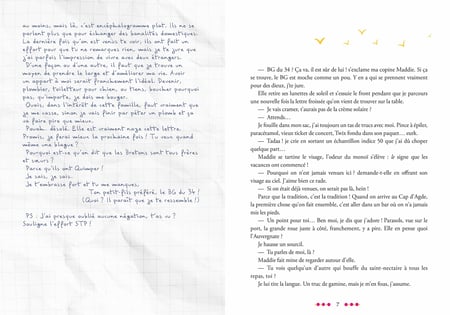 au moins, mais là, c'est encéphalogramme plat. Ils ne se
parlent plus que pour échanger des banalités domestiques.
La dernière fois qu'on est venus te voir, ils ont fait un
effort pour que tu ne remarques rien, mais je te jure que
j'ai parfois l'impression de vivre avec deux étrangers.
D'une façon ou d'une autre, il faut que je trouve un
moyen de prendre le large et d'améliorer ma vie. Avoir
un apport à moi serait franchement l'idéal. Devenir
plombier, toiletteur pour chien, au tiens, boucher pourquoi
pas, qu'importe, je dois me bouger.
Ouais, dans l'intérêt de cette famille, faut vraiment que
je me casse, sinon je vais finir par péter un plomb et ça
va faire pire que mieux.
Pouah. désolé. Elle est vraiment naze cette lettre.
Promis, je ferai mieux la prochaine fois ! Tu veux quand
même une blague ?
Pourquoi est-ce qu'on dit que les Bretons sont tous frères
et sœurs ?
Parce qu'ils ont Quimper !
Je sais, je sais.
Je t'embrasse fort et tu me manques.
Ton petit-fils préféré, le BG du 34 !
(Quoi ? Il paraît que je te ressemble !)
PS : J'ai presque oublié aucune négation, t'as vu ?
Souligne l'effort STP !
— BG du 34 ! Ça va, il est sûr de lui ! s'exclame ma copine Maddie. Si ça
se trouve, le BG est moche comme un pou. Y en a qui se prennent vraiment
pour des dieux, j'te jure.
Elle retire ses lunettes de soleil et s'essuie le front pendant que je parcours
une nouvelle fois la lettre froissée qu'on vient de trouver sur la table.
— Je vais cramer, t'aurais pas de la crème solaire ?
— Attends…
Je fouille dans mon sac, j'ai toujours un tas de trucs avec moi. Pince à épiler,
paracétamol, vieux ticket de concert, Twix fondu dans son paquet… eurk.
— Tadaa ! je crie en sortant un échantillon indice 50 que j'ai dû choper
quelque part…
Maddie se tartine le visage, l'odeur du monoï s'élève : à signe que les
vacances ont commencé !
— Pourquoi on n'est jamais venues ici ? demande-t-elle en offrant son
visage au ciel. J'aime bien ce rade.
— Si on était déjà venues, on serait pas là, hein !
Parce que la tradition, c'est la tradition ! Quand on arrive au Cap d'Agde,
la première chose qu'on fait ensemble, c'est aller dans un bar où on n'a jamais
mis les pieds.
— Un point pour toi… Ben moi, je dis que j'adore ! Parasols, vue sur le
port, la grande roue juste à côté, franchement, y a pire. Elle en pense quoi
l'Auvergnate ?
Je hausse un sourcil.
— Tu parles de moi, là ?
Maddie fait mine de regarder autour d'elle.
— Tu vois quelqu'un d'autre qui bouffe du saint-nectaire à tous les
repas, toi ?
Je lui tire la langue. Un truc de gamine, mais je m'en fous, j'assume.
7